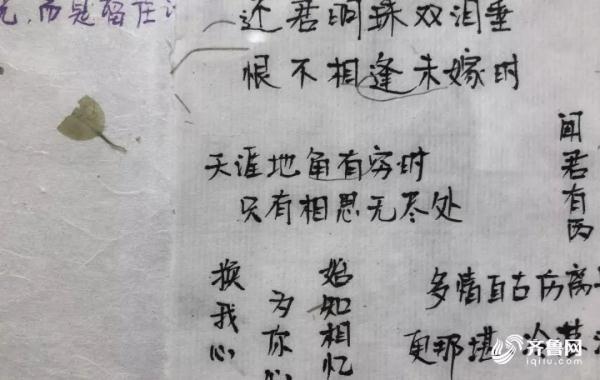 而是留在
还君明珠双泪垂
恨不相逢未嫁时
天涯地角有穷时
只有相思无尽处
闻君有两
换我心
为你心
始知相忆
多情自古伤离
更那堪 冷落
齐鲁网
iqilu.com